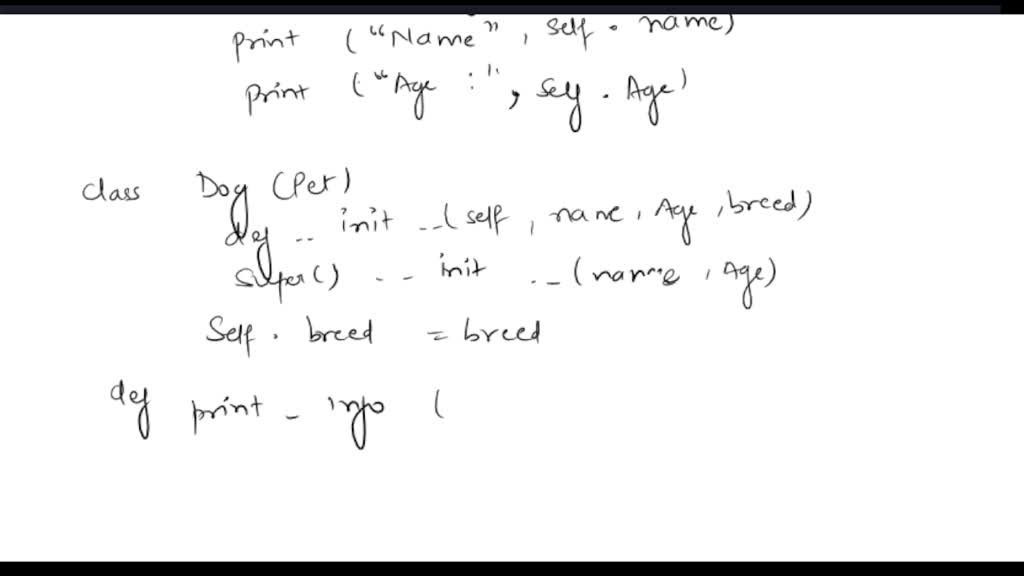 print ("Name", self. name)
print ("Age :", self. Age)
class Dog (Pet)
def -- init --(self, name, Age, breed)
super() -- init -- (name, Age)
Self. breed = breed
def print - info (